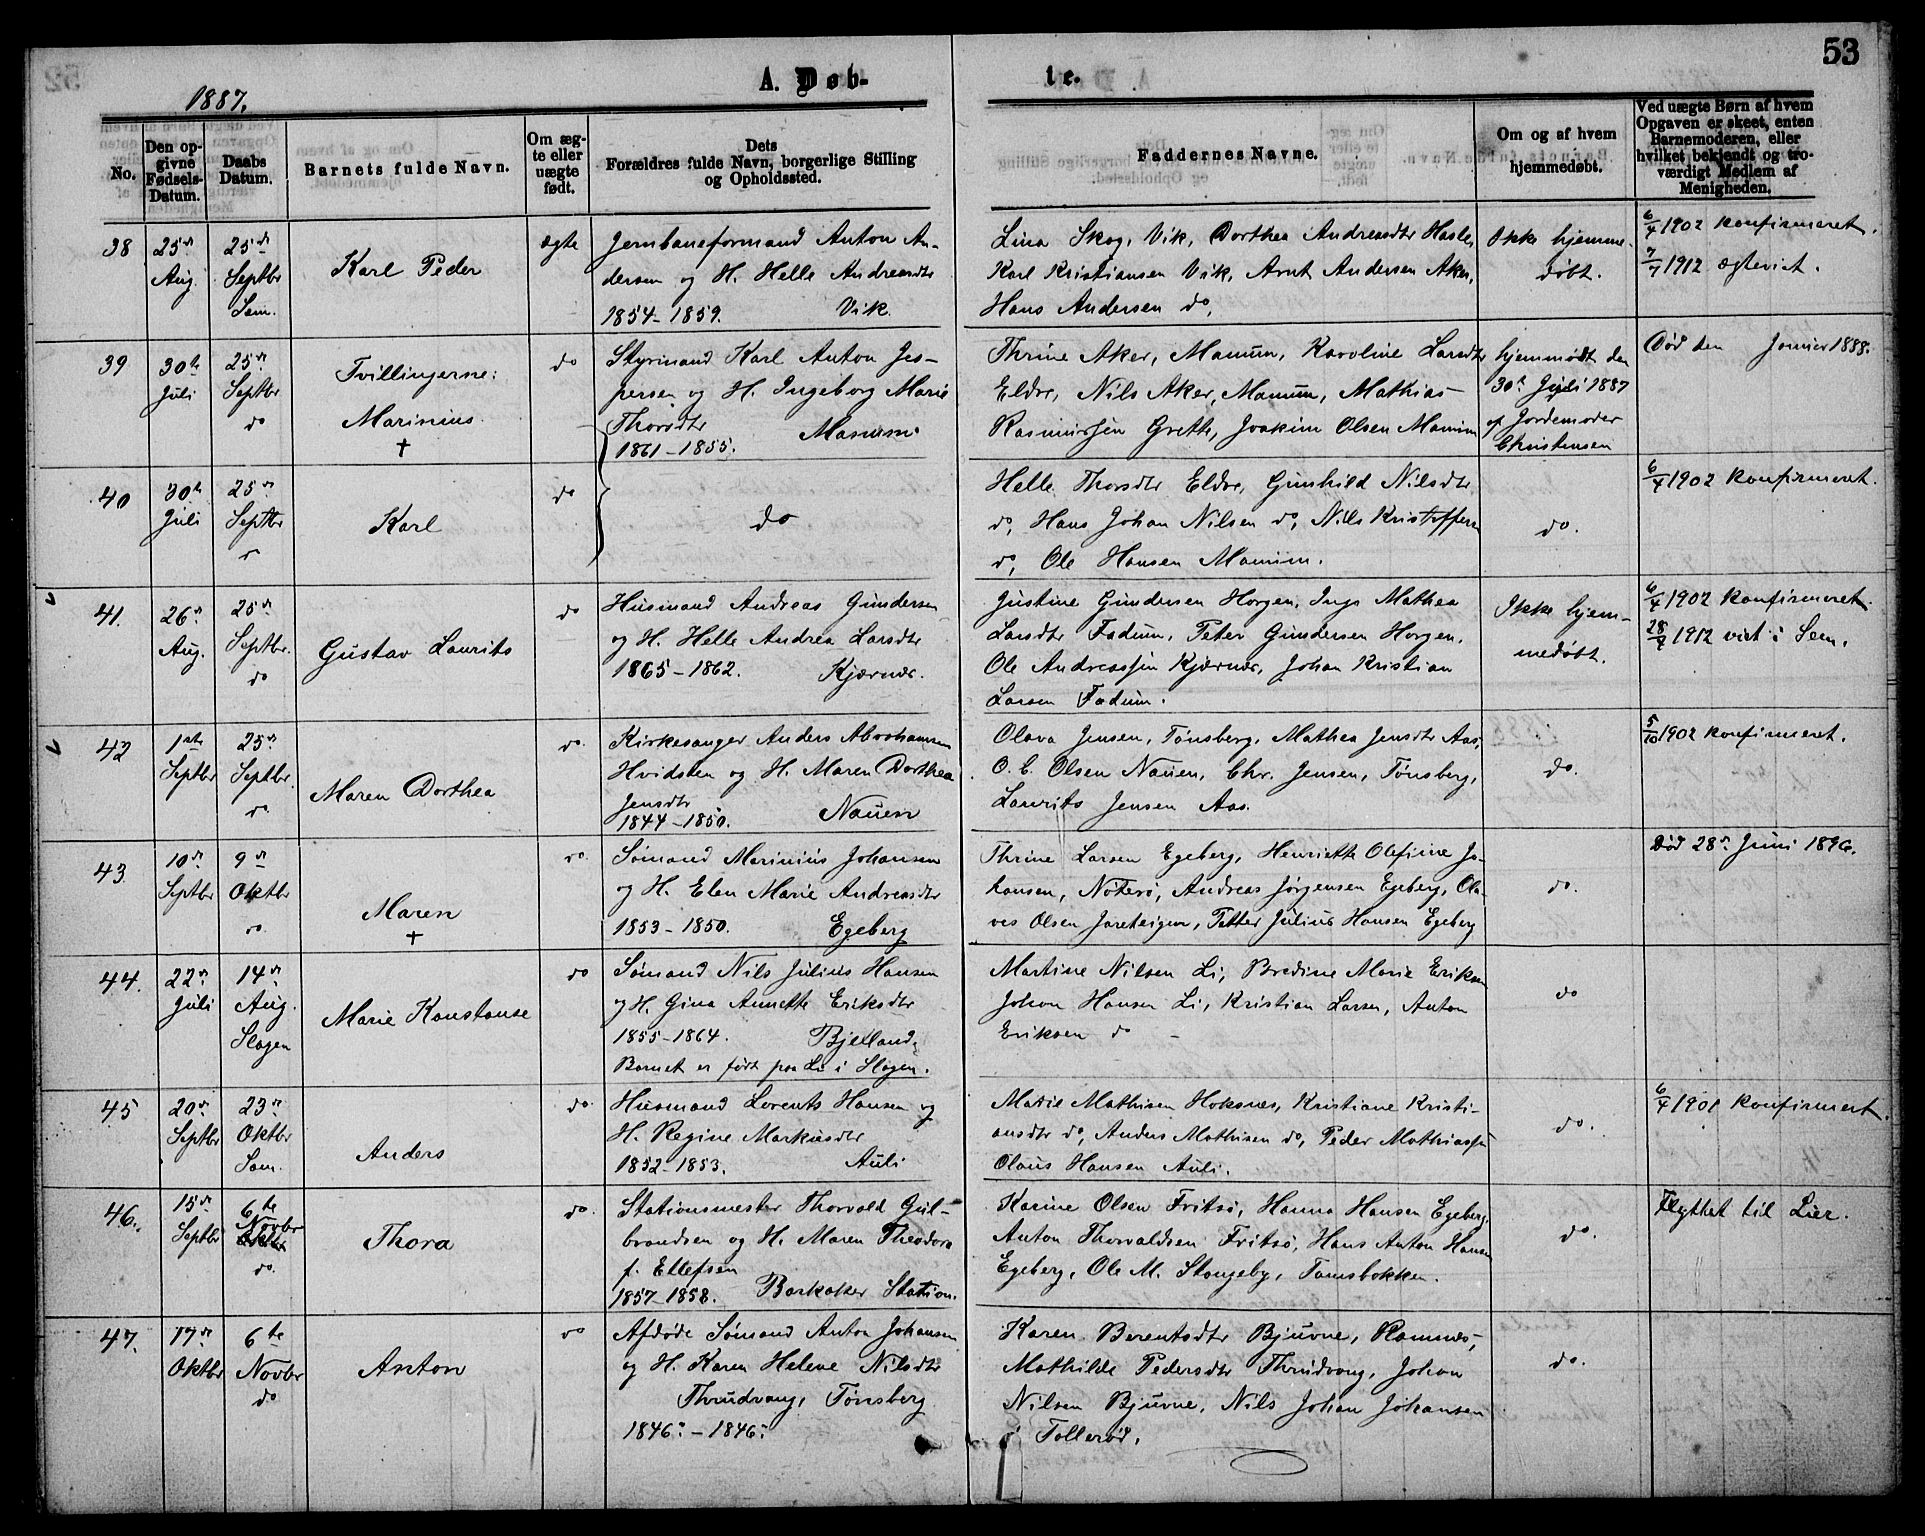 53
A. Døb-
te.
1887.
No.
Den op-
givne
Fødsels-
Datum.
Daabs
Datum.
Barnets fulde Navn.
Om æg-
te eller
uægte
født.
Dets
Forældres fulde Navn, borgerlige Stilling
og Opholdssted.
Faddernes Navne.
Om og af hvem
hjemmedøbt.
Ved uægte Børn af hvem
Opgaven er skeet, enten
Barnemoderen, eller
hvilket bekjendt og tro-
værdigt Medlem af
Menigheden.
38
25de
Aug.
25de
Septbr
Sem.
Karl Peder
ægte
Jernbaneformand Anton An-
dersen og H. Helle Andreasdtr
1854-1859. Vik.
Lina Skog, Vik, Dorthea Andreasdtr Hasle,
Karl Kristiansen Vik, Arnt Andersen Aker,
Hans Andersen do,
Ikke hjemme-
døbt.
6/4 1902 konfirmeret.
7/7 1912 ægteviet.
39
30te
Juli
25de
Septbr
do
Tvillingerne:
Marinius
+
do
Styrmand Karl Anton Jes-
persen og H. Ingeborg Marie
Thorsdtr Manum
1861-1855.
Thrine Aker, Manum, Karoline Larsdtr
Eldor, Nils Aker, Manum, Mathias
Rasmussen Greth, Joakim Olsen Manum
hjemmdøbt den
30te Juli 1887
af Jordemoder
Christensen
Død den Januar 1888.
40
30te
Juli
25de
Septbr
do
Karl
do
do
Helle Thorsdtr Eldor, Gunhild Nilsdtr
do, Hans Johan Nilsen do, Nils Kristoffersen
do, Ole Hansen Manum.
do.
6/4 1902 konfirmeret.
41.
26de
Aug.
25de
Septbr.
do
Gustav Laurits
do
Husmand Andreas Gundersen
og H. Helle Andrea Larsdtr
1865-1862. Kjærnæs.
Justine Gundersen Horgen, Inga Mathea
Larsdtr Fadum, Peter Gundersen Horgen,
Ole Andreassen Kjærnæs, Johan Kristian
Larsen Fadum.
Ikke hjem-
medøbt.
6/4 1902 konfirmeret.
1912 viet i Sem.
42
1ste
Septbr
25de
Septbr.
do.
Maren Dorthea
do.
Kirkesanger Anders Abrahamsen
Hvidsten og H. Maren Dorthea
Jensdtr
1844-1850. Nauen
Olava Jensen, Tønsberg, Mathea Jensdtr Aas,
O. C. Olsen Nauen, Chr. Jensen, Tønsberg,
Laurits Jensen Aas.
do.
5/10 1902 konfirmeret.
43.
10de
Septbr
9de
Oktbr
do.
Maren
+
do.
Sømand Marinius Johansen
og H. Elen Marie Andreasdtr
1853-1850. Egeberg
Thrine Larsen Egeberg, Henriette Olefine Jo-
hansen, Nøterø, Andreas Jørgensen Egeberg, Ola-
ves Olsen Jareteigen, Petter Julius Hansen Egeberg
do.
Død 28de Juni 1896.
44.
22de
Juli
14de
Aug.
Slagen
Marie Konstanse
do
Sømand Nils Julius Hansen
og H. Gina Annette Eriksdtr
1855-1864. Bjelland.
Barnet er født paa Li i Slagen.
Martine Nilsen Li, Bredine Marie Eriksen
Johan Hansen Li, Kristian Larsen, Anton
Eriksen do -
do
45
20de
Septbr
23de
Oktbr
Sem.
Anders
do.
Husmand Lorents Hansen og
H. Regine Markusdtr
1852-1853. Auli
Marie Mathisen Hoksnes, Kristiane Kristi-
ansdtr do, Anders Mathisen do, Peder Mathiassen
Olaus Hansen Auli.
do.
6/4 1901 konfirmert.
46.
15de
Septbr
6te
Novbr
Oktbr
do.
Thora
do.
Stationsmester Thorvald Gul-
brandsen og H. Maren Theodora
f. Ellefsen
1857-1858. Barkaker Station.
Karine Olsen Fritsø, Hanna Hansen Egeberg,
Anton Thorvaldsen Fritsø, Hans Anton Hansen
Egeberg, Ole M. Stangeby, Tamsbokken.
do.
Flyttet til Lier.
47.
17de
Oktbr
6te
Novbr
do
Anton
do
Afdøde Sømand Anton Johansen
og H. Karen Helene Nilsdtr
Thrudvang, Tønsberg
1846 - 1846
Karen Berentsdtr Bjuvne, Ramnes,
Mathilde Pedersdtr Thrudvang, Johan
Nilsen Bjuvne, Nils Johan Johansen
Tollerød.
do.